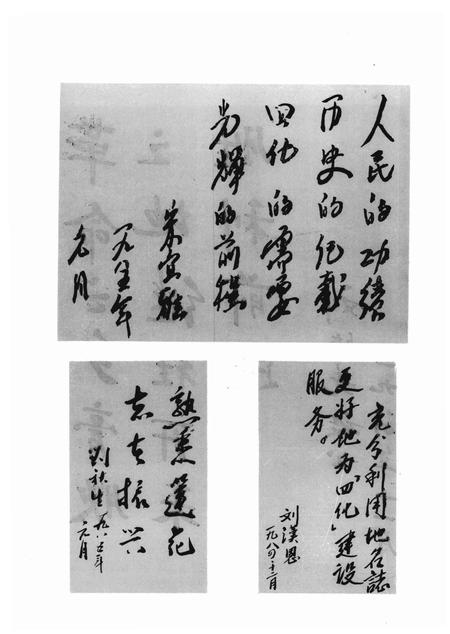 人民的功绩
历史的记载
四化的需要
光辉的前程
一九八五年
元月
充分利用地名誌
更好地为“四化”建设
服务。
刘漢恩
一九八四·十二月
熟悉蓮花
志在振兴
劉秋生
一九八五年
元月